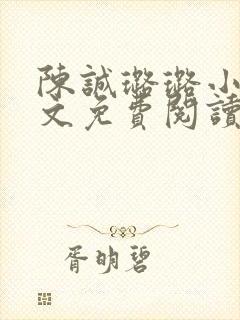 陳誠璐璐小
文免費閱讀
胥明碧